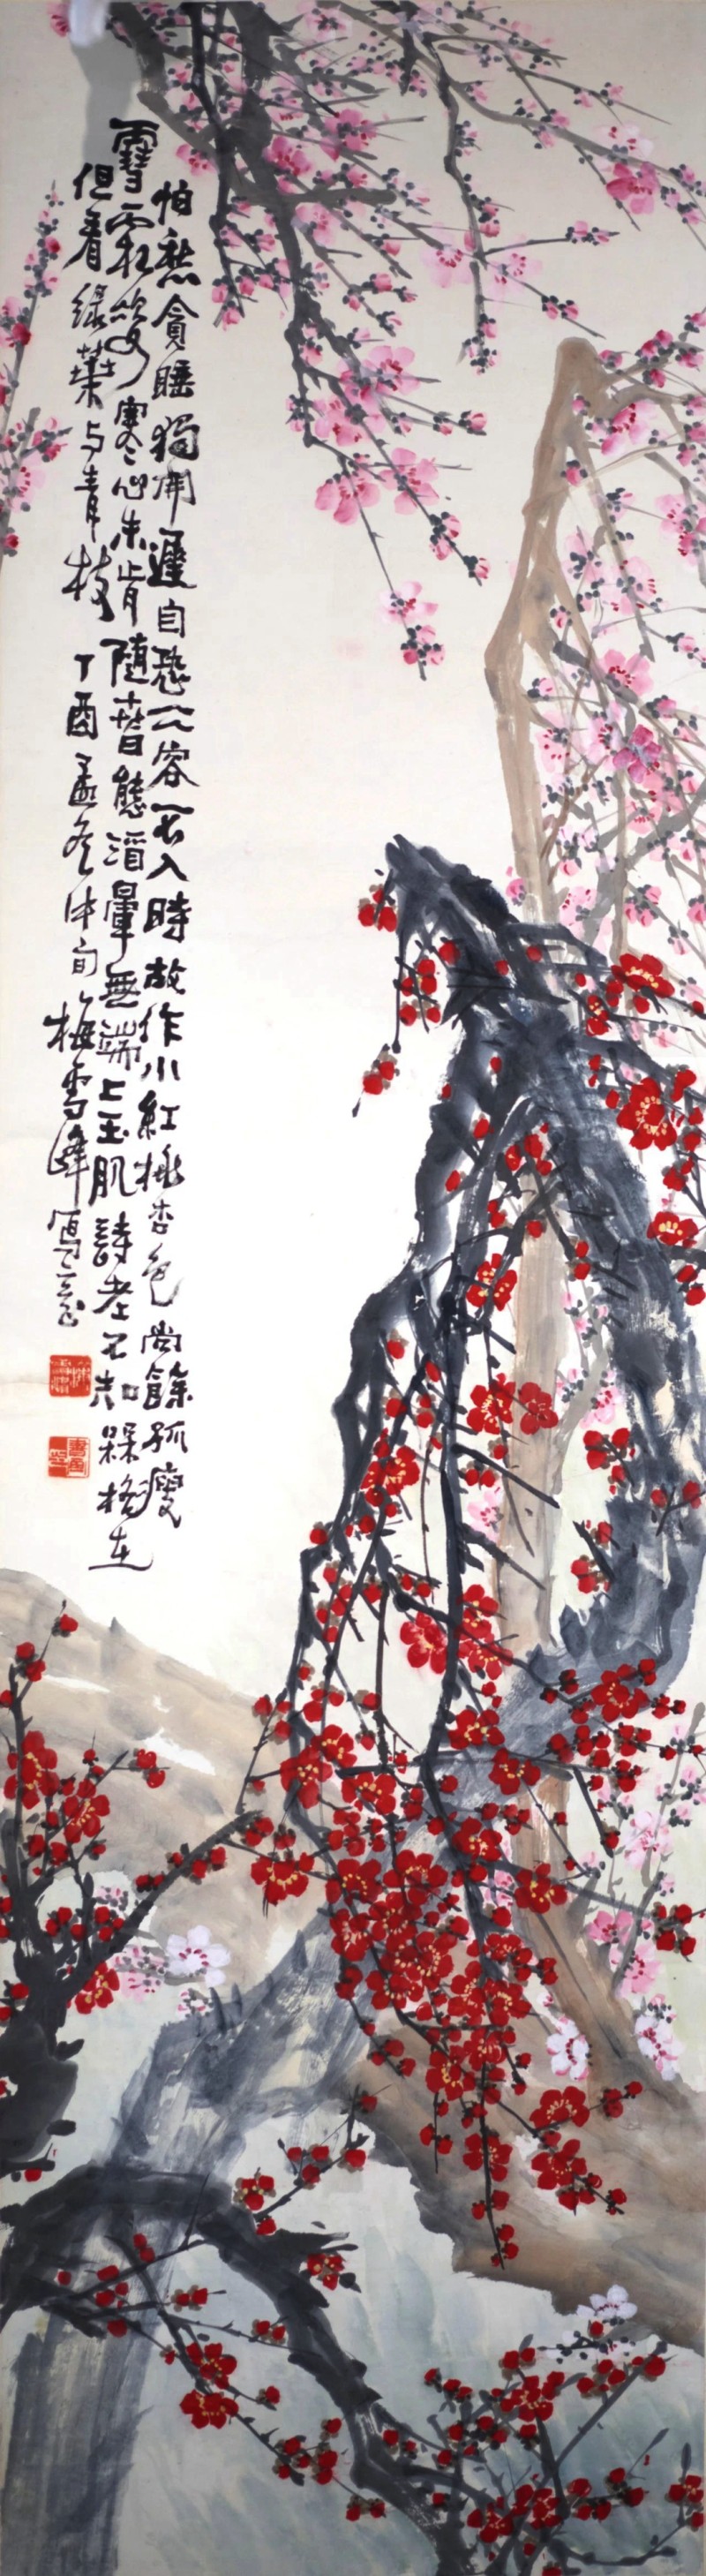 怕愁貪睡獨開遲自恐仌容不入時故作小紅桃杏色尚餘孤瘦
雪霜姿寒心未肯隨春態酒暈無端上玉肌詩老不知槑格在
但看綠葉与青枝 丁酉孟冬中旬梅雪峰寫